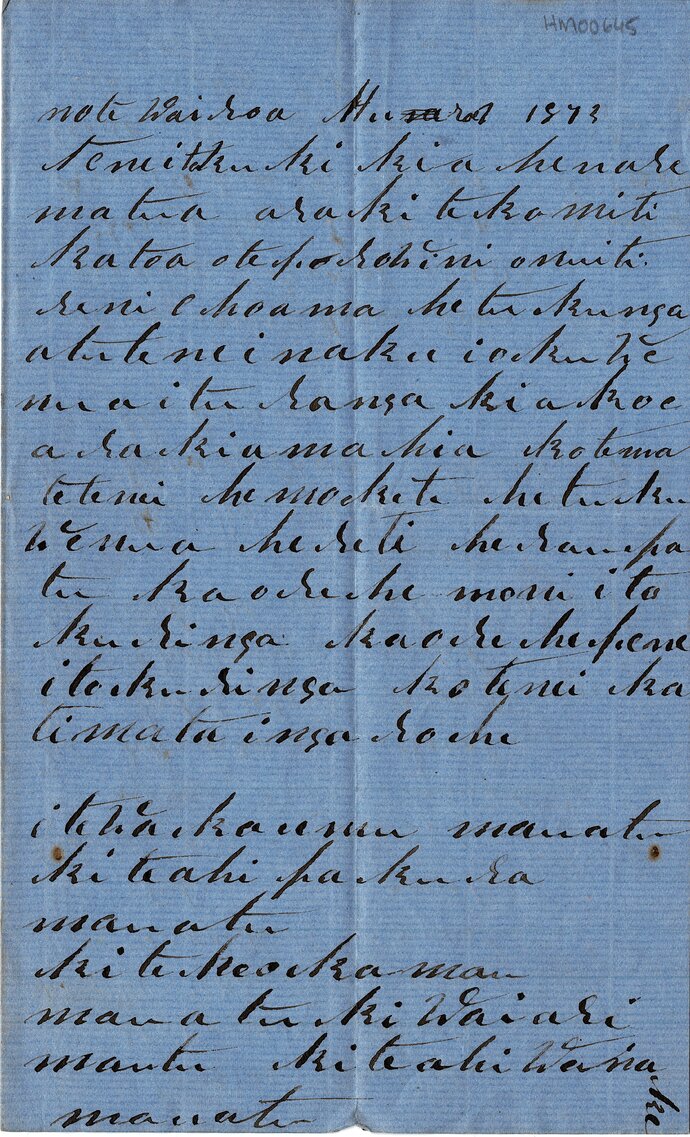 HM00645
note Wairoa Hu 1873
Temeituku ki kia henare
matua ara ki te komiti
katoa ote porowini onuiti
reni E hoa ma he tukunga
atu tenei naku i oku we
nua i tu ranga kia koe
ara kia mahia ko te ma
te tenei he mokete he tuku
wenua he reti he raupa
tu kaore he moni i to
ku ringa kaore he pene
i toku ringa ko tenei ka
timata i nga rohe
i te Wakaumu mau atu
ki te ahi pakura
mau atu
ki te keokamau
mau atu ki Waiari
mautu ki te ahi
mau atu